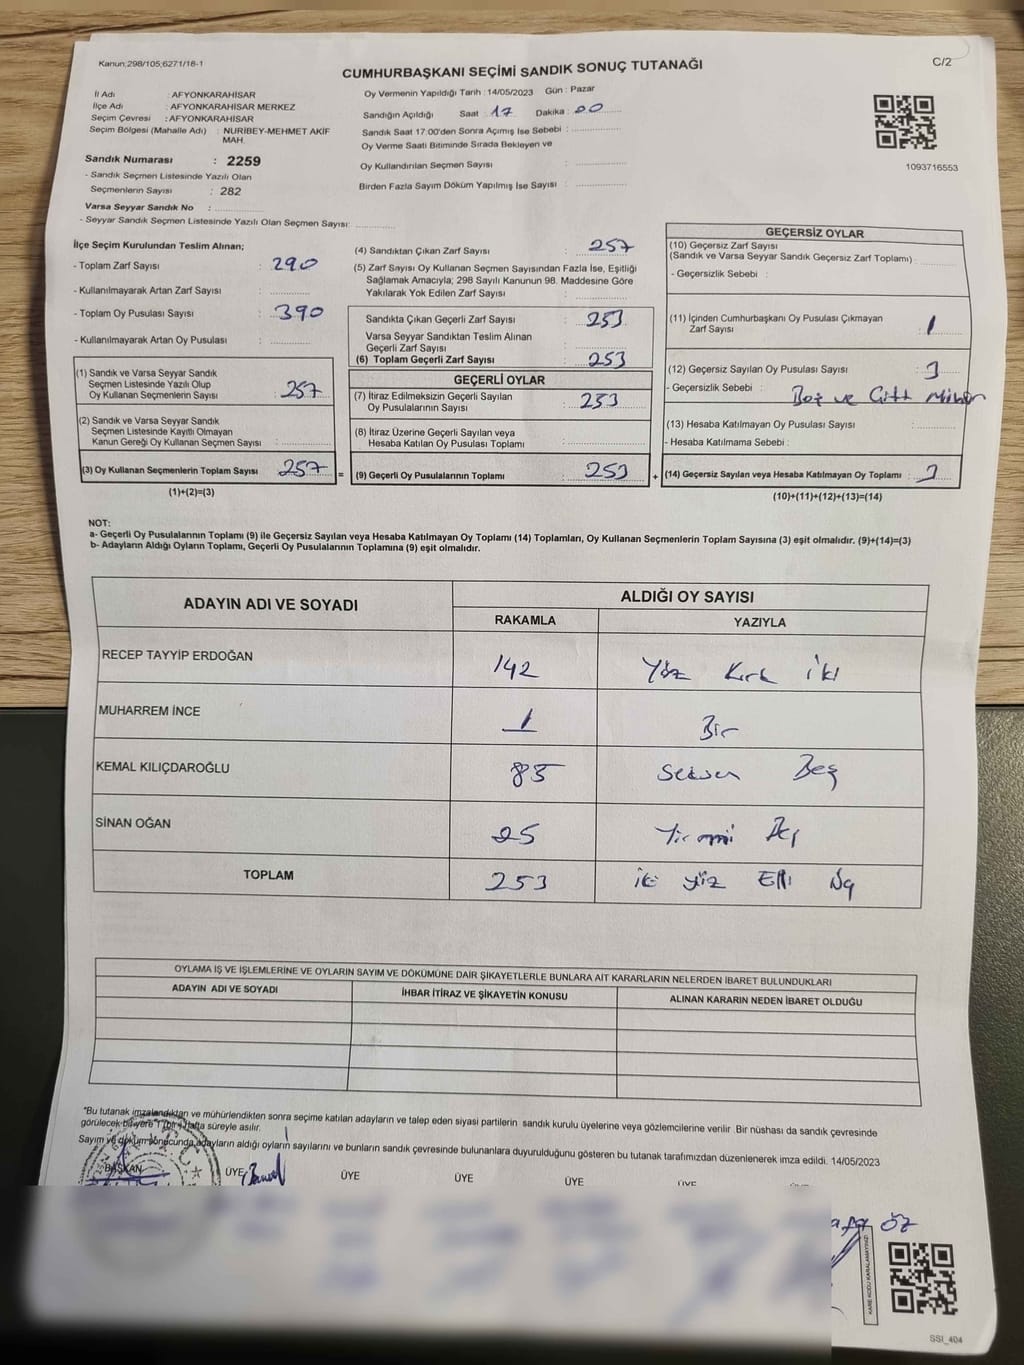 Kanun;298/105;6271/18-1
C/2
CUMHURBAŞKANI SEÇİMİ SANDIK SONUÇ TUTANAĞI
İl Adı : AFYONKARAHİSAR
İlçe Adı : AFYONKARAHİSAR MERKEZ
Seçim Çevresi : AFYONKARAHİSAR
Seçim Bölgesi (Mahalle Adı) : NURİBEY-MEHMET AKİF
MAH.
Sandık Numarası : 2259
- Sandık Seçmen Listesinde Yazılı Olan
Seçmenlerin Sayısı : 282
Varsa Seyyar Sandık No :
- Seyyar Sandık Seçmen Listesinde Yazılı Olan Seçmen Sayısı:
Oy Vermenin Yapıldığı Tarih : 14/05/2023 Gün : Pazar
Sandığın Açıldığı Saat : 17 Dakika : 00
Sandık Saat 17:00'den Sonra Açımış İse Sebebi :
Oy Verme Saati Bitiminde Sırada Bekleyen ve
Oy Kullandırılan Seçmen Sayısı :
Birden Fazla Sayım Döküm Yapılmış İse Sayısı :
1093716553
İlçe Seçim Kurulundan Teslim Alınan;
- Toplam Zarf Sayısı : 290
- Kullanılmayarak Artan Zarf Sayısı :
- Toplam Oy Pusulası Sayısı : 390
- Kullanılmayarak Artan Oy Pusulası :
(1) Sandık ve Varsa Seyyar Sandık
Seçmen Listesinde Yazılı Olup
Oy Kullanan Seçmenlerin Sayısı : 257
(2) Sandık ve Varsa Seyyar Sandık
Seçmen Listesinde Kayıtlı Olmayan
Kanun Gereği Oy Kullanan Seçmen Sayısı :
(3) Oy Kullanan Seçmenlerin Toplam Sayısı : 257 =
(1)+(2)=(3)
(4) Sandıktan Çıkan Zarf Sayısı : 257
(5) Zarf Sayısı Oy Kullanan Seçmen Sayısından Fazla İse, Eşitliği
Sağlamak Amacıyla; 298 Sayılı Kanunun 98. Maddesine Göre
Yakılarak Yok Edilen Zarf Sayısı :
Sandıkta Çıkan Geçerli Zarf Sayısı : 253
Varsa Seyyar Sandıktan Teslim Alınan
Geçerli Zarf Sayısı :
(6) Toplam Geçerli Zarf Sayısı : 253
GEÇERLİ OYLAR
(7) İtiraz Edilmeksizin Geçerli Sayılan
Oy Pusulalarının Sayısı : 253
(8) İtiraz Üzerine Geçerli Sayılan veya
Hesaba Katılan Oy Pusulası Toplamı :
(9) Geçerli Oy Pusulalarının Toplamı : 253 +
GEÇERSİZ OYLAR
(10) Geçersiz Zarf Sayısı
(Sandık ve Varsa Seyyar Sandık Geçersiz Zarf Toplamı) :
- Geçersizlik Sebebi :
(11) İçinden Cumhurbaşkanı Oy Pusulası Çıkmayan
Zarf Sayısı : 1
(12) Geçersiz Sayılan Oy Pusulası Sayısı : 3
- Geçersizlik Sebebi : Boş ve Çift Mühür
(13) Hesaba Katılmayan Oy Pusulası Sayısı :
- Hesaba Katılmama Sebebi :
(14) Geçersiz Sayılan veya Hesaba Katılmayan Oy Toplamı :
(10)+(11)+(12)+(13)=(14)
NOT:
a- Geçerli Oy Pusulalarının Toplamı (9) ile Geçersiz Sayılan veya Hesaba Katılmayan Oy Toplamı (14) Toplamları, Oy Kullanan Seçmenlerin Toplam Sayısına (3) eşit olmalıdır. (9)+(14)=(3)
b- Adayların Aldığı Oyların Toplamı, Geçerli Oy Pusulalarının Toplamına (9) eşit olmalıdır.
ADAYIN ADI VE SOYADI ALDIĞI OY SAYISI
RAKAMLA YAZIYLA
RECEP TAYYİP ERDOĞAN 142 Yüz Kırk İki
MUHARREM İNCE 1 Bir
KEMAL KILIÇDAROĞLU 85 Seksen Beş
SİNAN OĞAN 25 Yirmi Beş
TOPLAM 253 iki yüz Elli Üç
OYLAMA İŞ VE İŞLEMLERİNE VE OYLARIN SAYIM VE DÖKÜMÜNE DAİR ŞİKAYETLERLE BUNLARA AİT KARARLARIN NELERDEN İBARET BULUNDUKLARI
ADAYIN ADI VE SOYADI İHBAR İTİRAZ VE ŞİKAYETİN KONUSU ALINAN KARARIN NEDEN İBARET OLDUĞU
*Bu tutanak imzalandıktan ve mühürlendikten sonra seçime katılan adayların ve talep eden siyasi partilerin sandık kurulu üyelerine veya gözlemcilerine verilir. Bir nüshası da sandık çevresinde
görülecek bir yere 1 (bir) hafta süreyle asılır.
Sayım ve döküm sonucunda adayların aldığı oyların sayılarını ve bunların sandık çevresinde bulunanlara duyurulduğunu gösteren bu tutanak tarafımızdan düzenlenerek imza edildi. 14/05/2023
BAŞKAN ÜYE ÜYE ÜYE ÜYE
ÖZ
KARE KODU KARALAMAYINIZ!
SSI_404